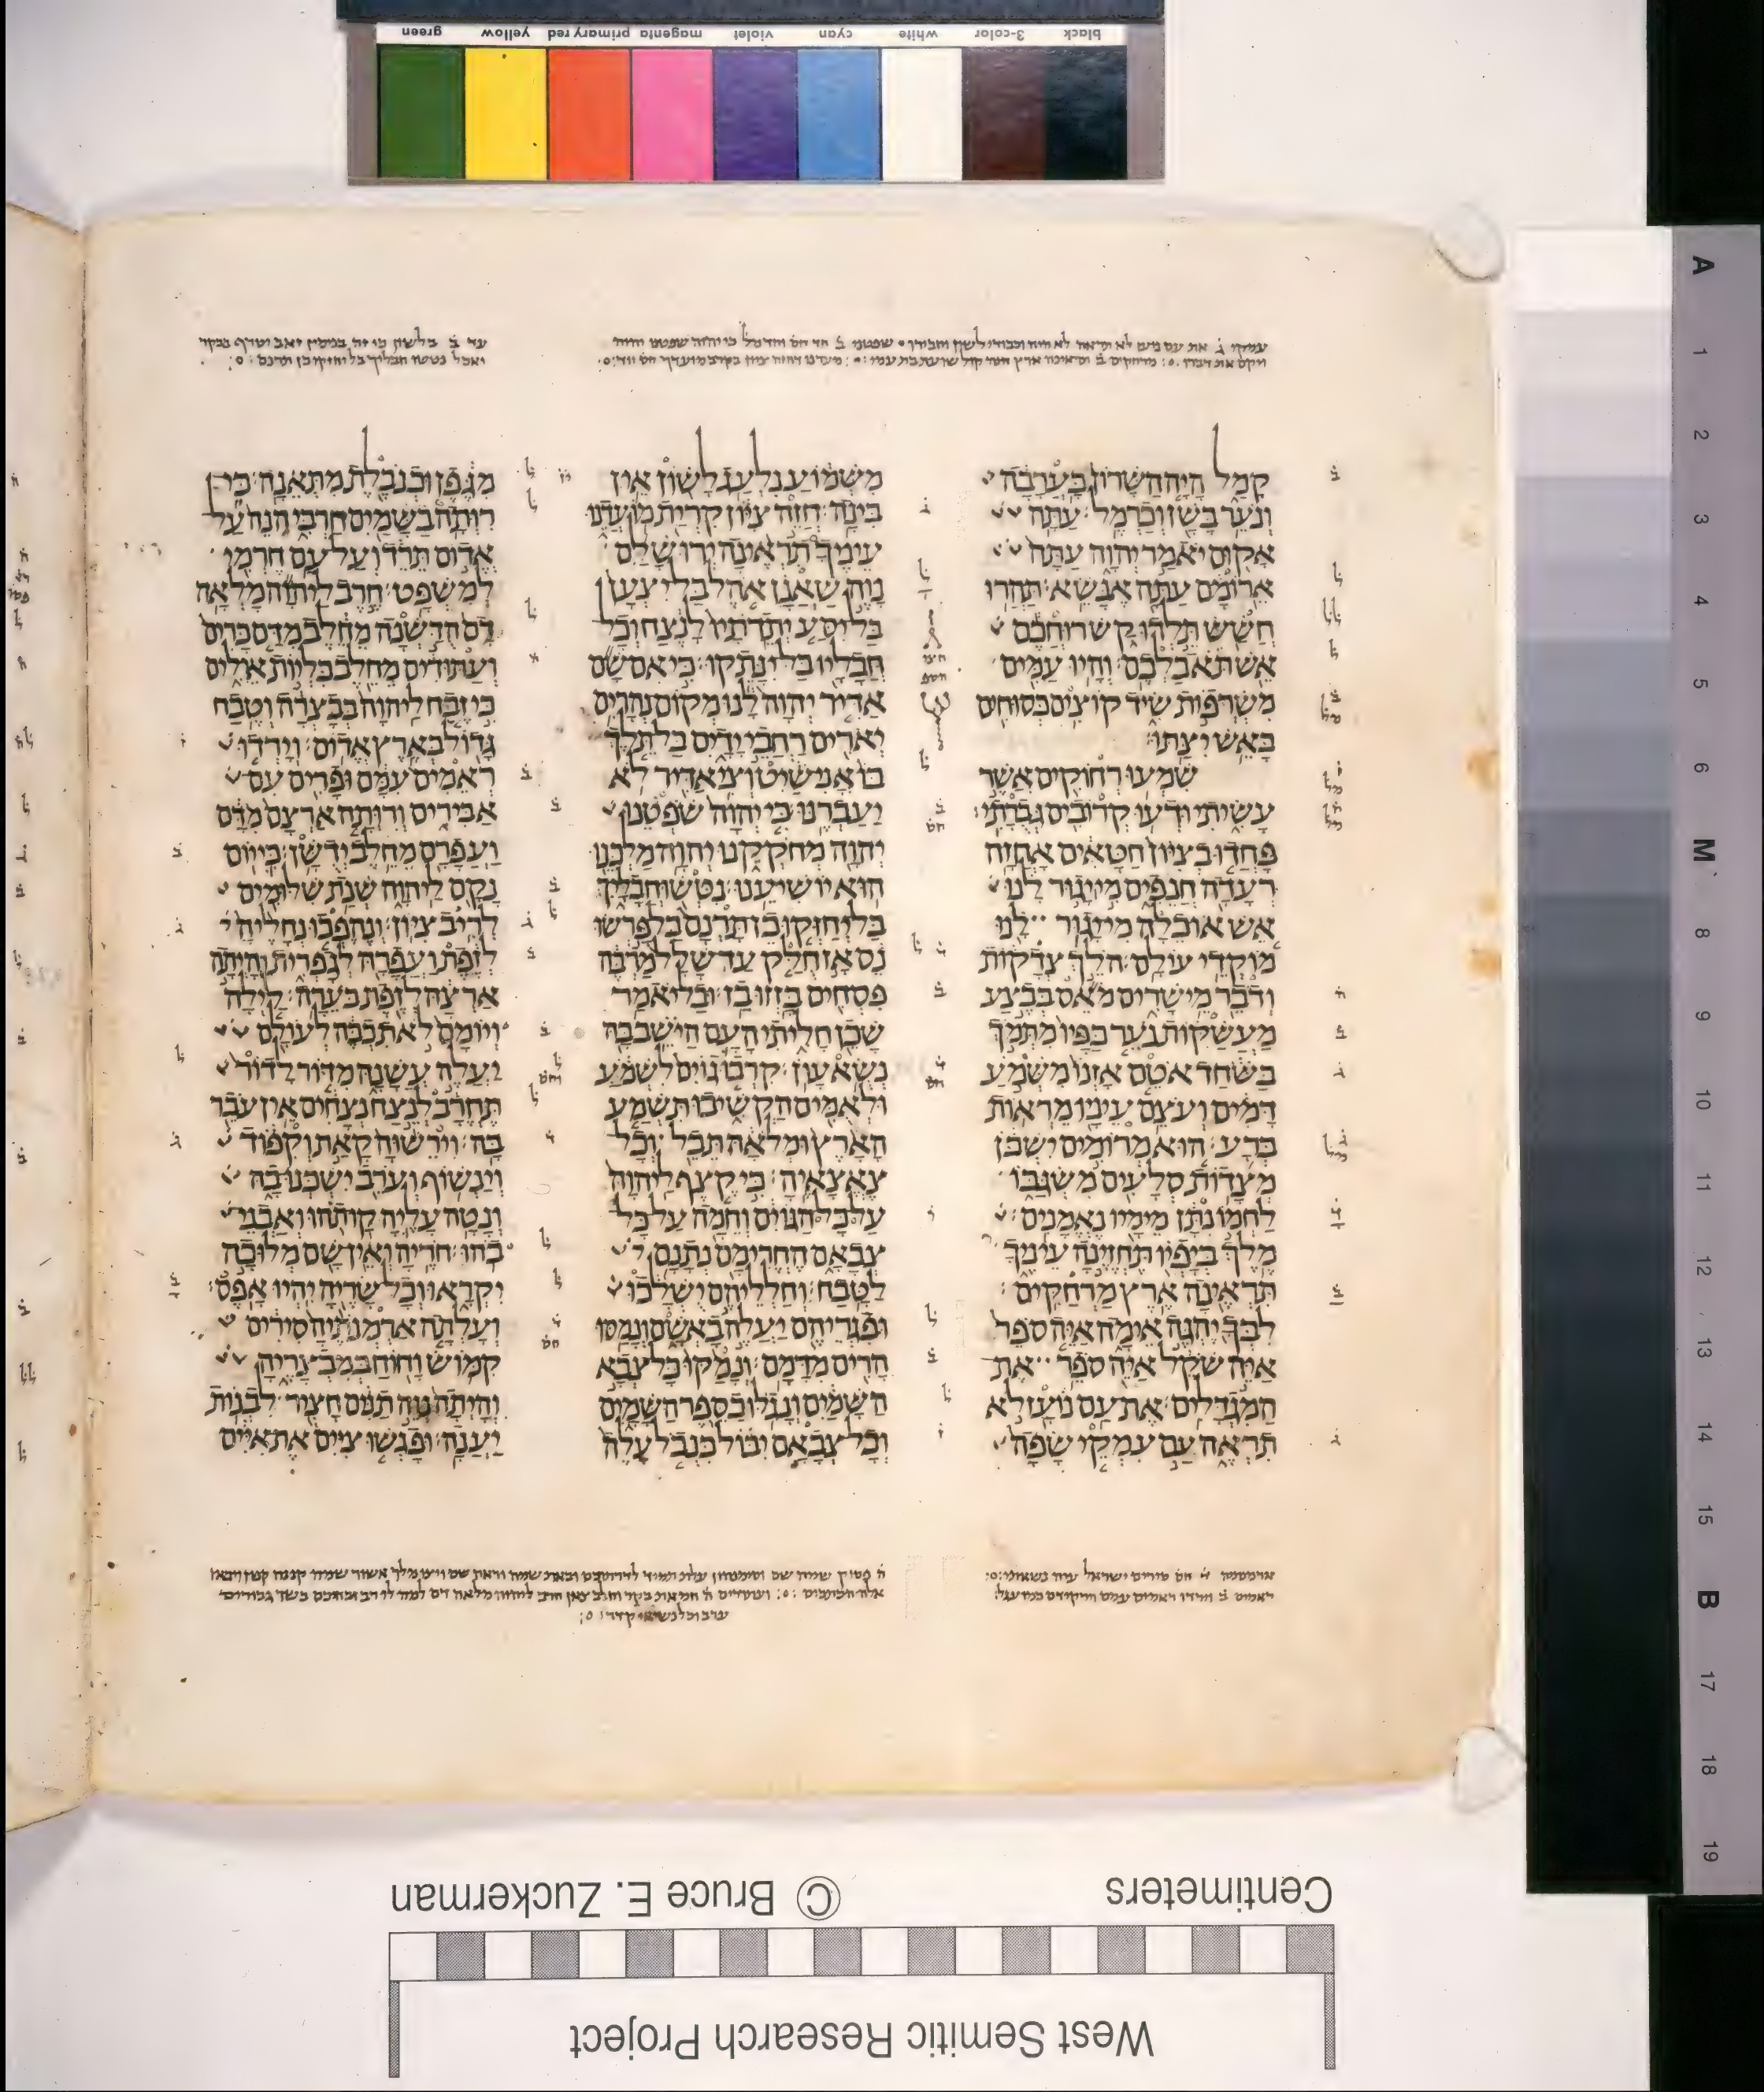 black 3-color white cyan violet magenta primary red yellow green
קמל היה השרון כערבה
ונער בשן וכרמל׃ עתה
אקום יאמר יהוה עתה
ארומם עתה אנשא׃ תהרו
חשש תלדו קש רוחכם
אש תאכלכם׃ והיו עמים
משרפות שיד קוצים כסוחים
באש יצתו׃
שמעו רחוקים אשר
עשיתי ודעו קרובים גברתי׃
פחדו בציון חטאים אחזה
רעדה חנפים מי יגור לנו
אש אוכלה מי יגור לנו
מוקדי עולם׃ הלך צדקות
ודבר מישרים מאס בבצע
מעשקות נער כפיו מתמך
בשחד אטם אזנו משמע
דמים ועצם עיניו מראות
ברע׃ הוא מרומים ישכן
מצדות סלעים משגבו
לחמו נתן מימיו נאמנים׃
מלך ביפיו תחזינה עיניך
תראינה ארץ מרחקים׃
לבך יהגה אימה איה ספר
איה שקל איה ספר את
המגדלים׃ את עם נועז לא
תראה עם עמקי שפה
משמוע נלעג לשון אין
בינה׃ חזה ציון קרית מועדנו
עיניך תראינה ירושלם
נוה שאנן אהל בל יצען
בל יסע יתדתיו לנצח וכל
חבליו בל ינתקו׃ כי אם שם
אדיר יהוה לנו מקום נהרים
יארים רחבי ידים בל תלך
בו אני שיט וצי אדיר לא
יעברנו׃ כי יהוה שפטנו
יהוה מחקקנו יהוה מלכנו
הוא יושיענו׃ נטשו חבליך
בל יחזקו כן תרנם בל פרשו
נס אז חלק עד שלל מרבה
פסחים בזזו בז׃ ובל יאמר
שכן חליתי העם הישב בה
נשא עון׃ קרבו גוים לשמע
ולאמים הקשיבו תשמע
הארץ ומלאה תבל וכל
צאצאיה׃ כי קצף ליהוה
על כל הגוים וחמה על כל
צבאם החרימם נתנם
לטבח׃ וחלליהם ישלכו
ופגריהם יעלה באשם ונמסו
הרים מדמם׃ ונמקו כל צבא
השמים ונגלו כספר השמים
וכל צבאם יבול כנבל עלה
מגפן וכנבלת מתאנה׃ כי
רותה בשמים חרבי הנה על
אדום תרד ועל עם חרמי
למשפט׃ חרב ליהוה מלאה
דם הדשנה מחלב מדם כרים
ועתודים מחלב כליות אילים
כי זבח ליהוה בבצרה וטבח
גדול בארץ אדום׃ וירדו
ראמים עמם ופרים עם
אבירים ורותה ארצם מדם
ועפרם מחלב ידשן׃ כי יום
נקם ליהוה שנת שלומים
לריב ציון׃ ונהפכו נחליה
לזפת ועפרה לגפרית והיתה
ארצה לזפת בערה׃ לילה
ויומם לא תכבה לעולם
יעלה עשנה מדור לדור
תחרב לנצח נצחים אין עבר
בה׃ וירשוה קאת וקפוד
וינשוף וערב ישכנו בה
ונטה עליה קו תהו ואבני
בהו׃ חריה ואין שם מלוכה
יקראו וכל שריה יהיו אפס׃
ועלתה ארמנתיה סירים
קמוש וחוח במבצריה
והיתה נוה תנים חציר לבנות
יענה׃ ופגשו ציים את איים
Centimeters © Bruce E. Zuckerman
West Semitic Research Project
A
1
2
3
4
5
6
M
8
9
10
11
12
13
14
15
B
17
18
19